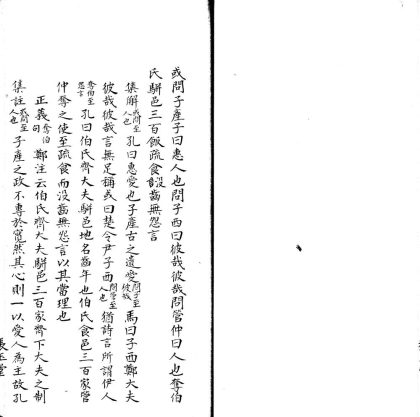 或問子產子曰惠人也問子西曰彼哉彼哉問管仲曰人也奪伯
氏駢邑三百飯疏食沒齒無怨言
集解或問至人也孔曰惠愛也子產古之遺愛問子至彼哉馬曰子西鄭大夫
彼哉彼哉言無足稱或曰楚令尹子西問管至人也猶詩言所謂伊人
奪伯至怨言孔曰伯氏齊大夫駢邑地名齒年也伯氏食邑三百家管
仲奪之使至疏食而沒齒無怨言以其當理也
正義奪伯句鄭注云伯氏齊大夫駢邑三百家齊下大夫之制
集註或問至人也子產之政不專於寬然其心則一以愛人為主故孔